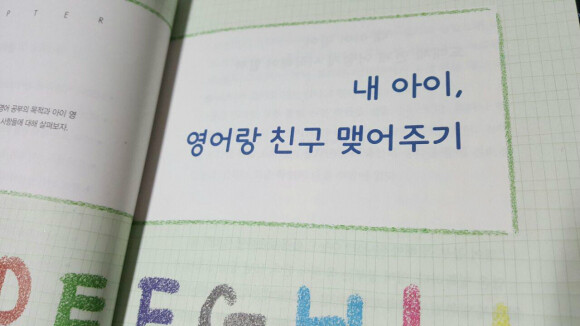 PTER
영어 공부의 목적과 아이 영
사항들에 대해 살펴보자.
내 아이,
영어랑 친구 맺어주기
D E F G H I J